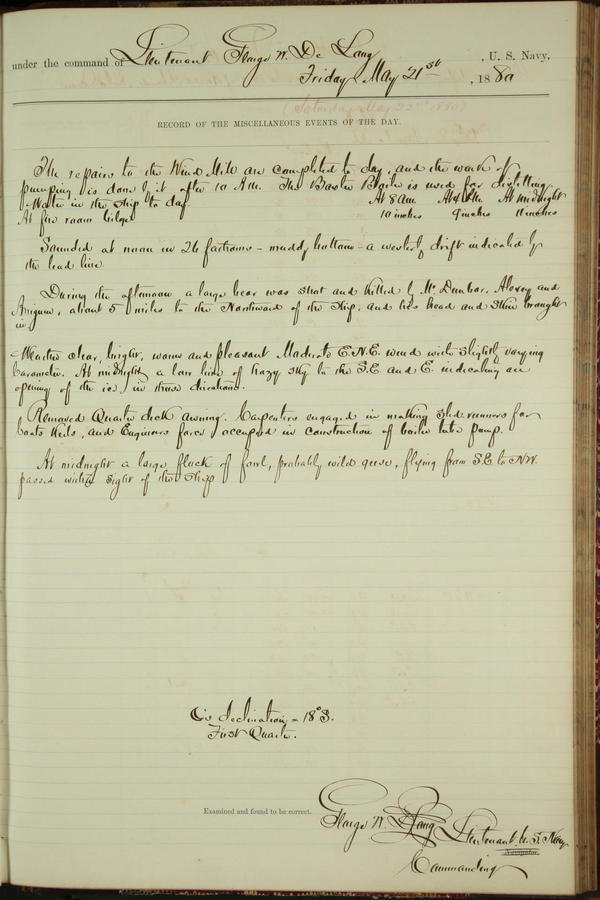 under the command of Lieutenant George W. De Long, U. S. Navy,
Friday May 21st, 1880
(Saturday May 22nd 1880)
RECORD OF THE MISCELLANEOUS EVENTS OF THE DAY.
The repairs to the Wind Mill are completed to day, and the work of
pumping is done by it after 10 A.M. The Baxter Boiler is used for distilling.
Water in the Ship to day At 8 am At 4 P.M. At midnight
At fire room bilge 10 inches 9 inches 11 inches
Sounded at noon in 26 fathoms - muddy bottom - a westerly drift indicated by
the lead line.
During the afternoon a large bear was shot and killed by Mr Dunbar, Alexey and
Aneguin, about 5 miles to the Northward of the Ship, and his head and skin brought
in.
Weather clear, bright, warm and pleasant. Moderate E.N.E. wind with slightly varying
barometer. At midnight a low line of hazy sky to the S.E and E. indicating an
opening of the ice in those directions.
Removed Quarter deck awning. Carpenters engaged in making sled runners for
boats keels, and Engineers force occupied in construction of boiler tube pump.
At midnight a large flock of fowl, probably wild geese, flying from S.E to NW.
passed within sight of the Ship
declination = 18° S.
First Quarter.
Examined and found to be correct.
George W. De Long Lieutenant U. S. Navy
Navigator.
Commanding